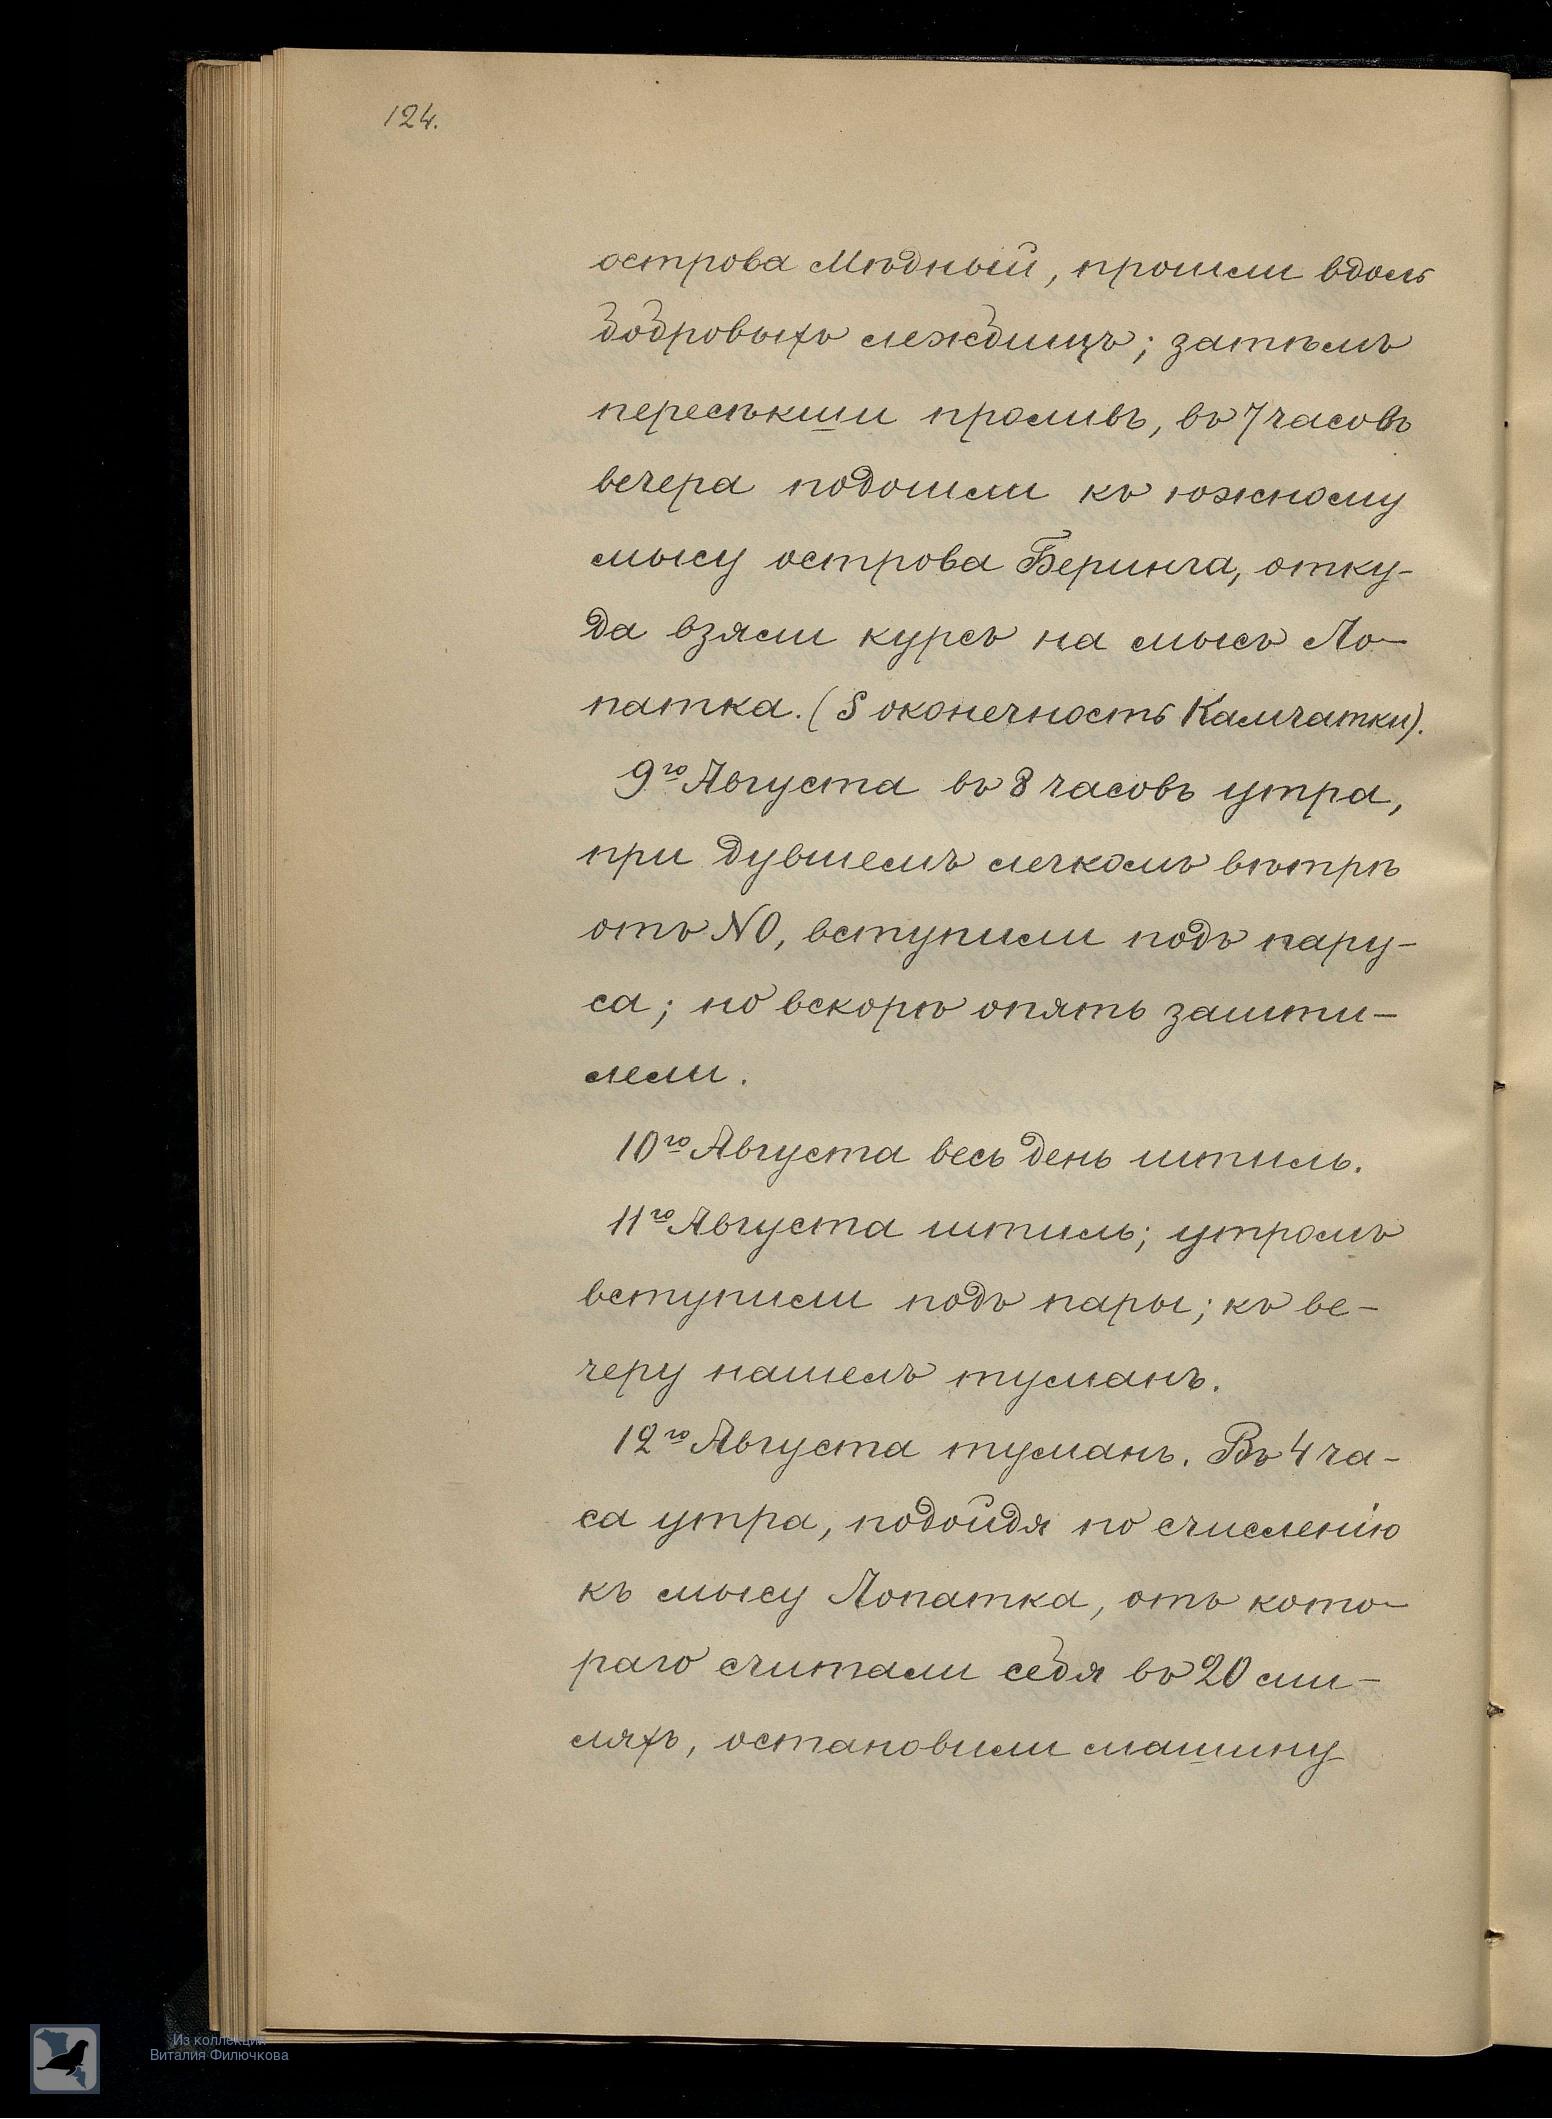 124.
острова Мѣдный, прошли вдоль
бобровыхъ лежбищъ; затѣмъ
пересѣкши проливъ, въ 7 часовъ
вечера подошли къ южному
мысу острова Беринга, отку-
да взяли курсъ на мысъ Ло-
патка. (S оконечность Камчатки).
9го Августа въ 8 часовъ утра,
при дувшемъ легкомъ вѣтрѣ
отъ NO, вступили подъ пару-
са; но вскорѣ опять зашти-
лели.
10го Августа весь день штиль.
11го Августа штиль; утромъ
вступили подъ пары; къ ве-
черу нашелъ туманъ.
12го Августа туманъ. Въ 4 ча-
са утра, подойдя по счисленію
къ мысу Лопатка, отъ кото-
раго считали себя въ 20 ми-
ляхъ, остановили машину
Из коллекции
Виталия Филючкова